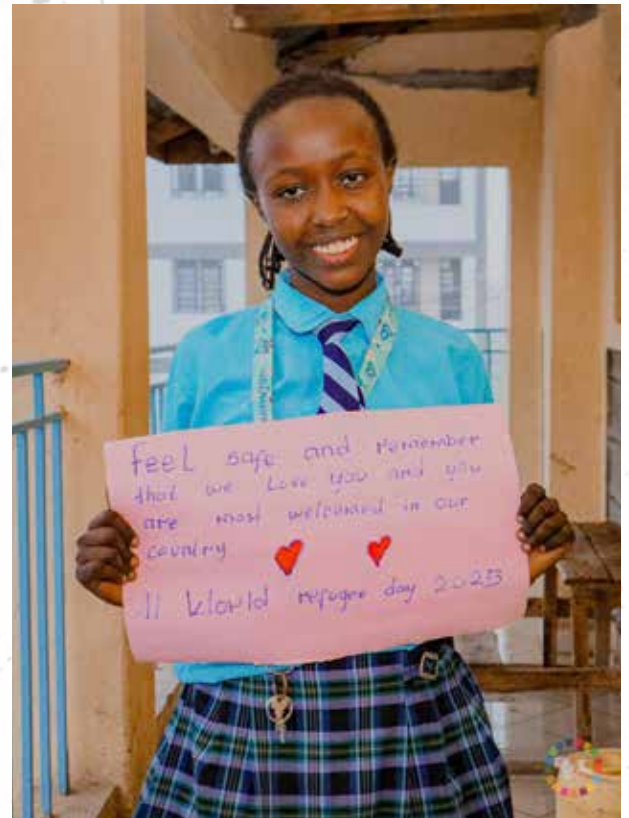 feel safe and remember
that we Love you and you
are most welcomed in our
country
11 World refugee day 2023